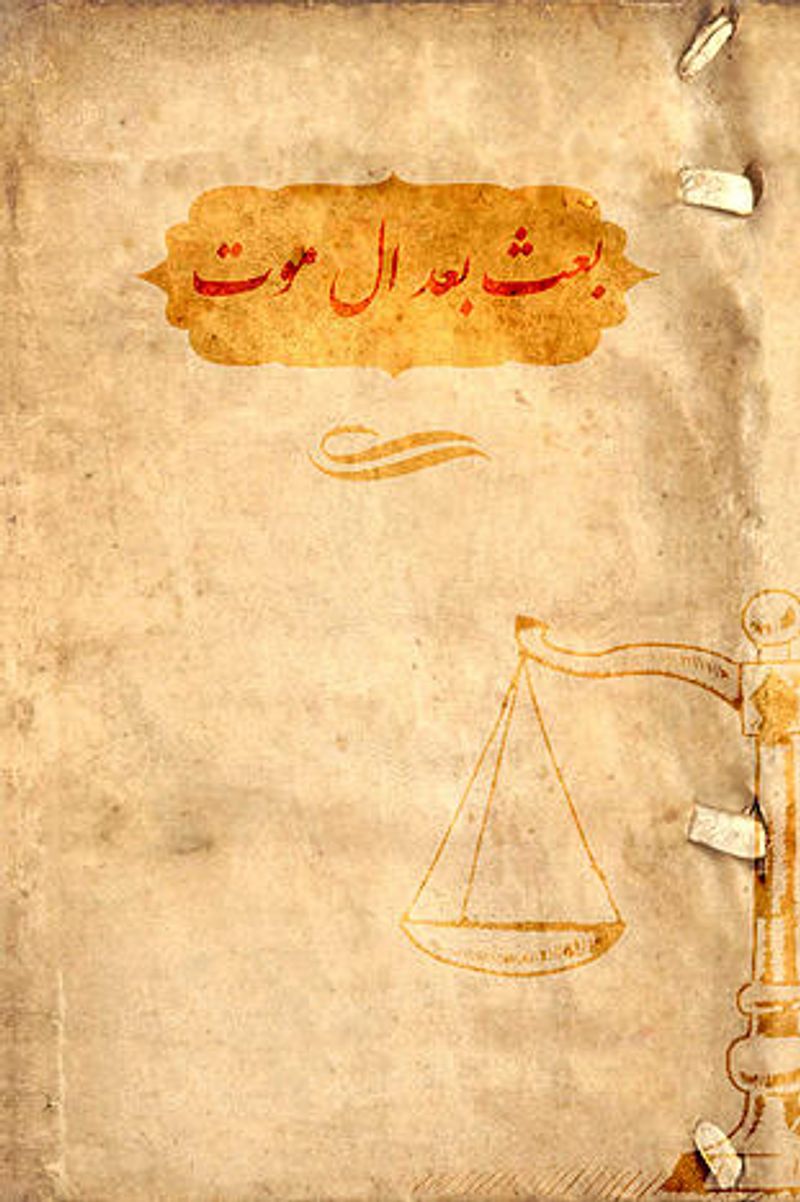 بعث بعد ال موت